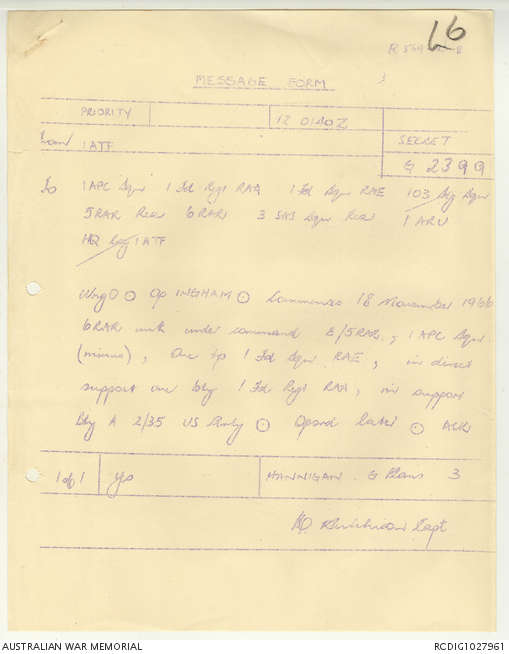 16
MESSAGE FORM
PRIORITY 12 0140Z
From 1 ATF SECRET
G 2399
To 1 APC Sqn 1 Fd Regt RAA 1 Fd Sqn RAE 103 Sig Sqn
5 RAR Rear 6 RAR 3 SAS Sqn Rear 1 ARU
HQ Coy 1 ATF
WngO ⊙ Op INGHAM ⊙ Commences 18 November 1966
6 RAR with under command B/5 RAR, 1 APC Sqn
(minus), One tp 1 Fd Sqn RAE, in direct
support one bty 1 Fd Regt RAA, in support
Bty A 2/35 US Arty ⊙ Opord later ⊙ ACK
1 of 1 yes HANNIGAN. G Plans 3
Capt
AUSTRALIAN WAR MEMORIAL RCDIG1027961